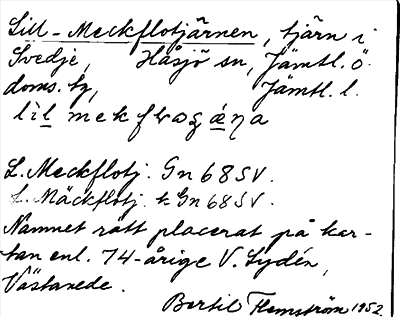 Lill-Meckflotjärnen, tjärn i
Svedje, Håsjö sn, Jämtl. ö.
doms. hg, Jämtl. l.
L. Meckflotj. Gn 68 SV.
L. Mäckflotj. k Gn 68 SV.
Namnet rätt placerat på kar-
tan enl. 74-årige V. Lydén,
Västanede.
Bertil Flemström 1952.